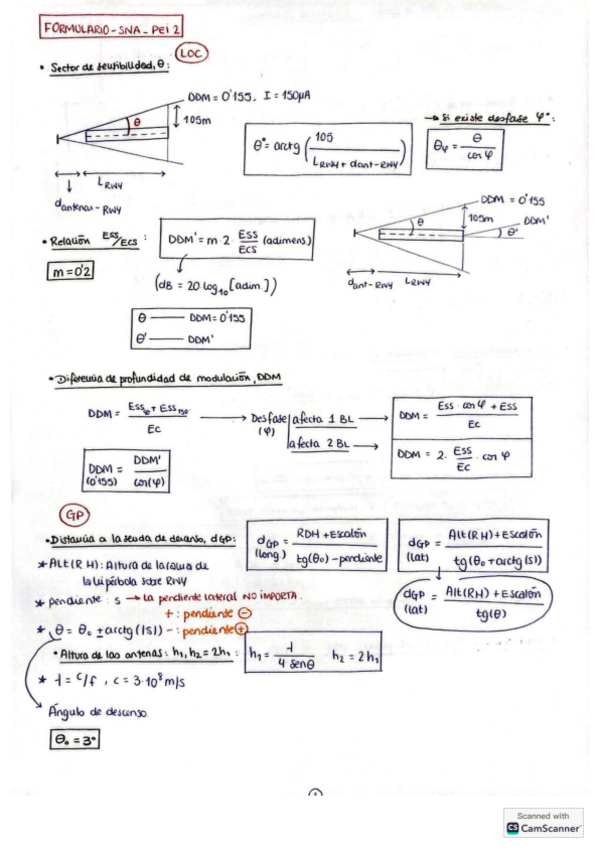 FORMULARIO - SNA - PEI 2
LOC
• Sector de sensibilidad, θ:
DDM = 0'155, I = 150μA
105m
θ
L RWY
d antenas - RWY
θ° = arctg (105 / (L RWY + d ant - RWY))
→ Si existe desfase φ°:
θφ = θ / cos φ
• Relación Ess/Ecs :
m = 0'2
DDM' = m · 2 · Ess/Ecs (adimens.)
(dB = 20 log10 [adim.])
θ —— DDM = 0'155
θ' —— DDM'
DDM = 0'155
105m
DDM'
θ
θ'
d ant - RWY
L RWY
• Diferencia de profundidad de modulación, DDM
DDM = (Ess90 + Ess150) / Ec
Desfase (φ)
afecta 1 BL
DDM = (Ess · cos φ + Ess) / Ec
afecta 2 BL
DDM = 2 · Ess/Ec · cos φ
DDM (0'155) = DDM' / cos(φ)
GP
• Distancia a la senda de descenso, dGP:
dGP (long.) = (RDH + Escalón) / (tg(θ0) - pendiente)
dGP (lat) = (Alt(RH) + Escalón) / tg(θ0 + arctg|S|)
* Alt(RH): Altura de la caída de
la hipérbola sobre RWY
dGP (lat) = (Alt(RH) + Escalón) / tg(θ)
* pendiente: s → La pendiente lateral NO IMPORTA.
+ : pendiente ⊖
* θ = θ0 ± arctg(|S|) - : pendiente ⊕
• Altura de las antenas: h1, h2 = 2h1 :
h1 = λ / (4 senθ) h2 = 2h1
* λ = c/f , c = 3·10^8 m/s
Ángulo de descenso
θ0 = 3°
1
Scanned with
CS CamScanner